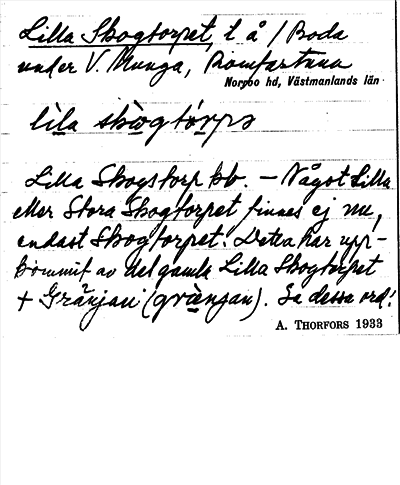 Lilla Skogtorpet, l å / Boda
under V. Munga, Romfartuna
Norrbo hd, Västmanlands län
lìla skògtòrpə
Lilla Skogstorp kb. – Något Lilla
eller Stora Skogtorpet finnes ej nu,
endast Skogtorpet. Detta har upp-
kommit av det gamla Lilla Skogtorpet
+ Gränjan (grä̀njan). Se dessa ord!
A. THORFORS 1933